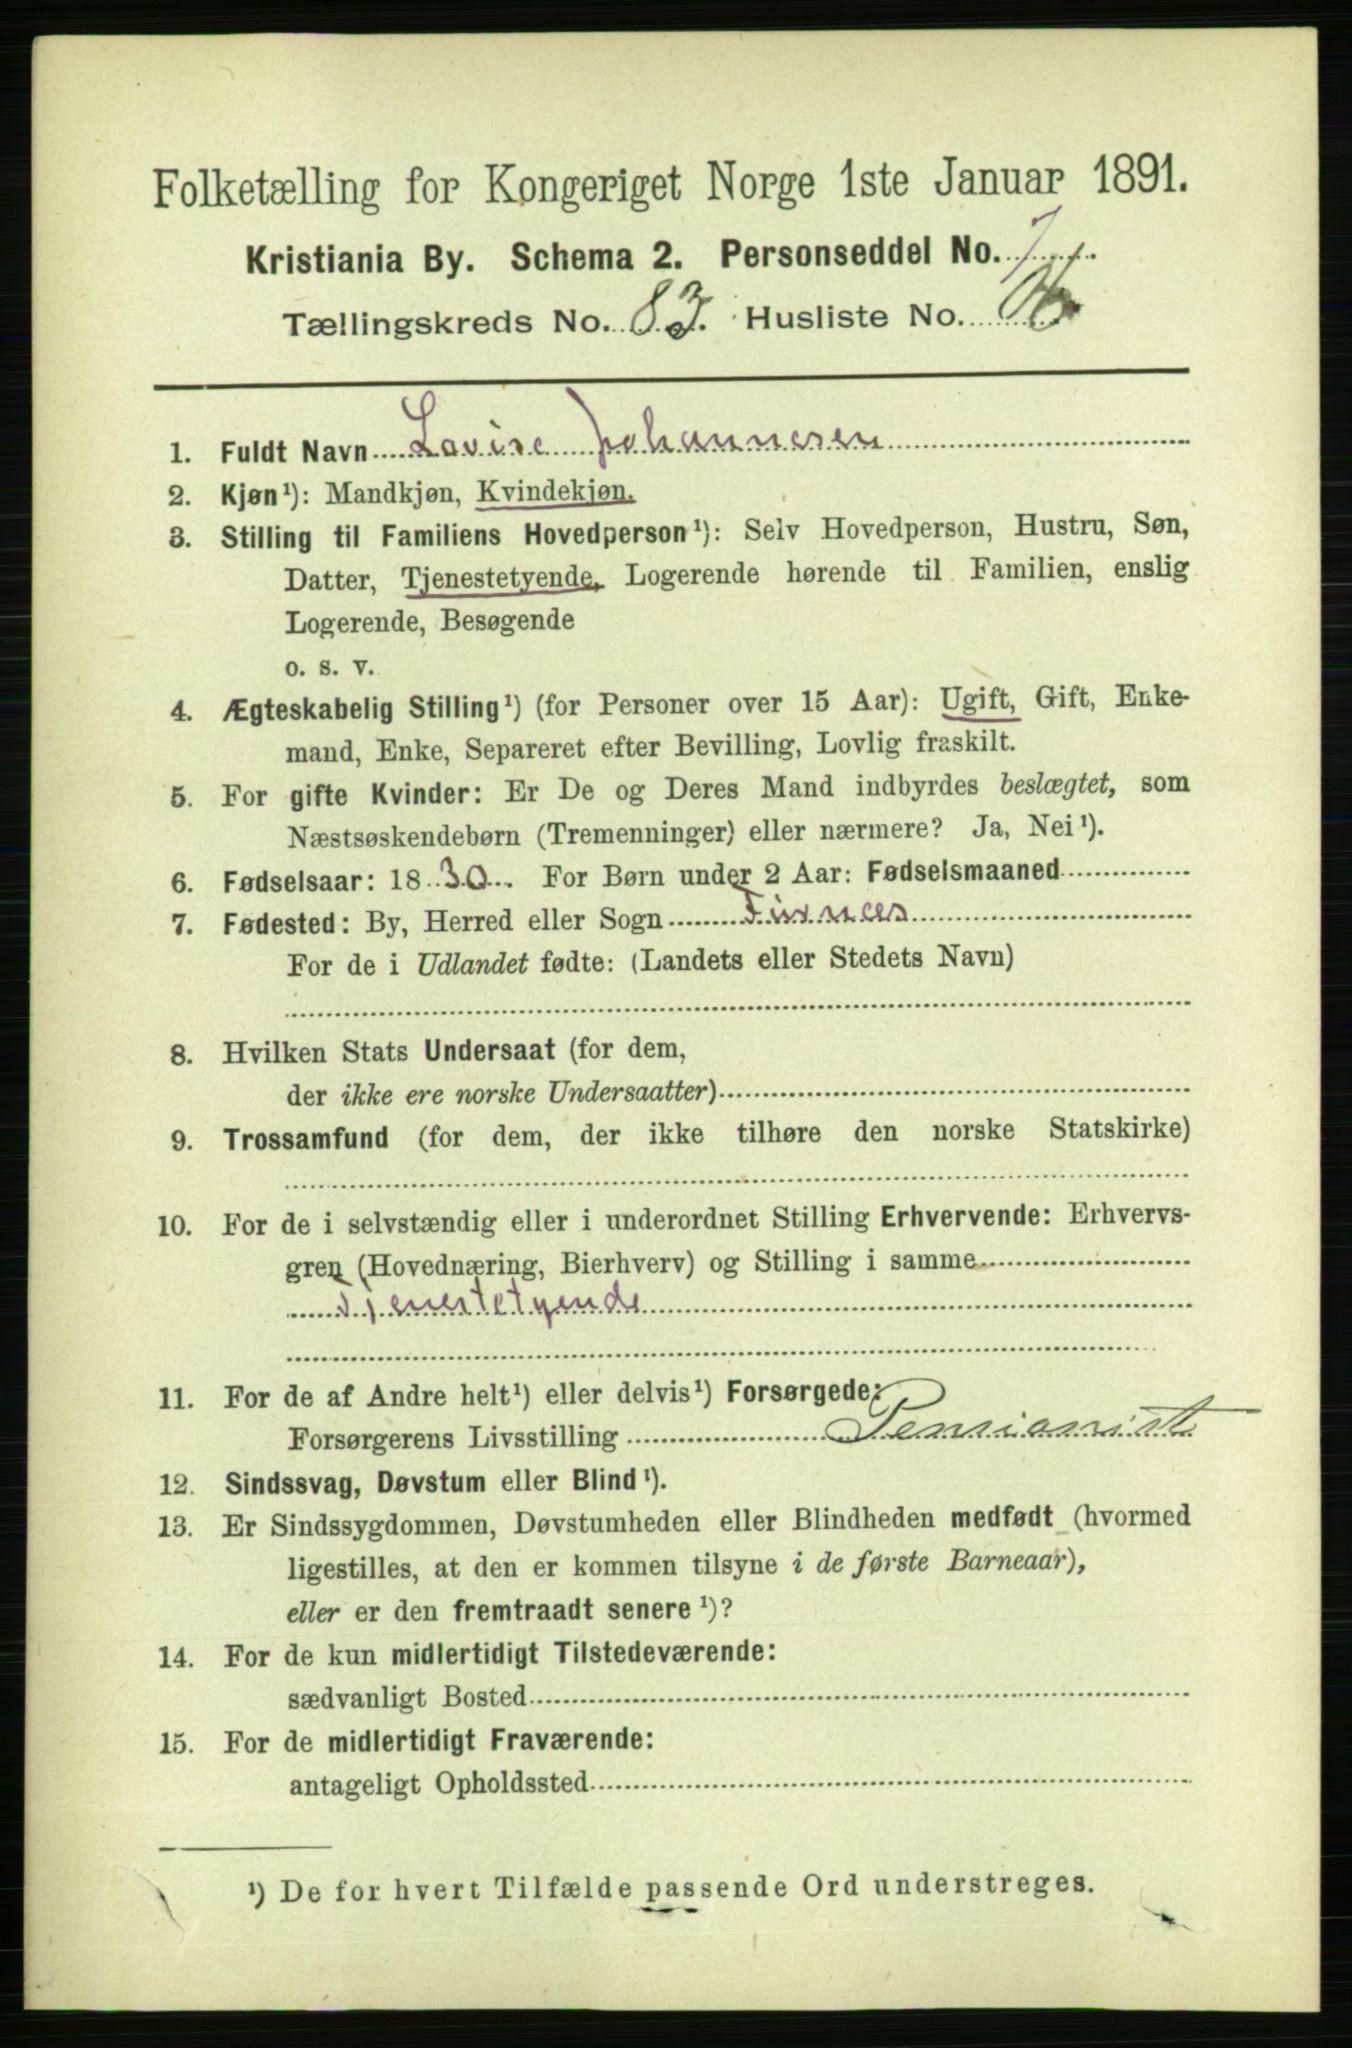 Folketælling for Kongeriget Norge 1ste Januar 1891.
Kristiania By. Schema 2. Personseddel No. 7
Tællingskreds No. 83. Husliste No.
1. Fuldt Navn Lovise Johannesen
2. Kjøn¹): Mandkjøn, Kvindekjøn.
3. Stilling til Familiens Hovedperson¹): Selv Hovedperson, Hustru, Søn,
Datter, Tjenestetyende, Logerende hørende til Familien, enslig
Logerende, Besøgende
o. s. v.
4. Ægteskabelig Stilling¹) (for Personer over 15 Aar): Ugift, Gift, Enke-
mand, Enke, Separeret efter Bevilling, Lovlig fraskilt.
5. For gifte Kvinder: Er De og Deres Mand indbyrdes beslægtet, som
Næstsøskendebørn (Tremenninger) eller nærmere? Ja, Nei¹).
6. Fødselsaar: 1830. For Børn under 2 Aar: Fødselsmaaned
7. Fødested: By, Herred eller Sogn Furnces
For de i Udlandet fødte: (Landets eller Stedets Navn)
8. Hvilken Stats Undersaat (for dem,
der ikke ere norske Undersaatter)
9. Trossamfund (for dem, der ikke tilhøre den norske Statskirke)
10. For de i selvstændig eller i underordnet Stilling Erhvervende: Erhvervs-
gren (Hovednæring, Bierhverv) og Stilling i samme
Tjenestetyende
11. For de af Andre helt¹) eller delvis¹) Forsørgede:
Forsørgerens Livsstilling Pensionist
12. Sindssvag, Døvstum eller Blind¹).
13. Er Sindssygdommen, Døvstumheden eller Blindheden medfødt (hvormed
ligestilles, at den er kommen tilsyne i de første Barneaar),
eller er den fremtraadt senere¹)?
14. For de kun midlertidigt Tilstedeværende:
sædvanligt Bosted
15. For de midlertidigt Fraværende:
antageligt Opholdssted
¹) De for hvert Tilfælde passende Ord understreges.